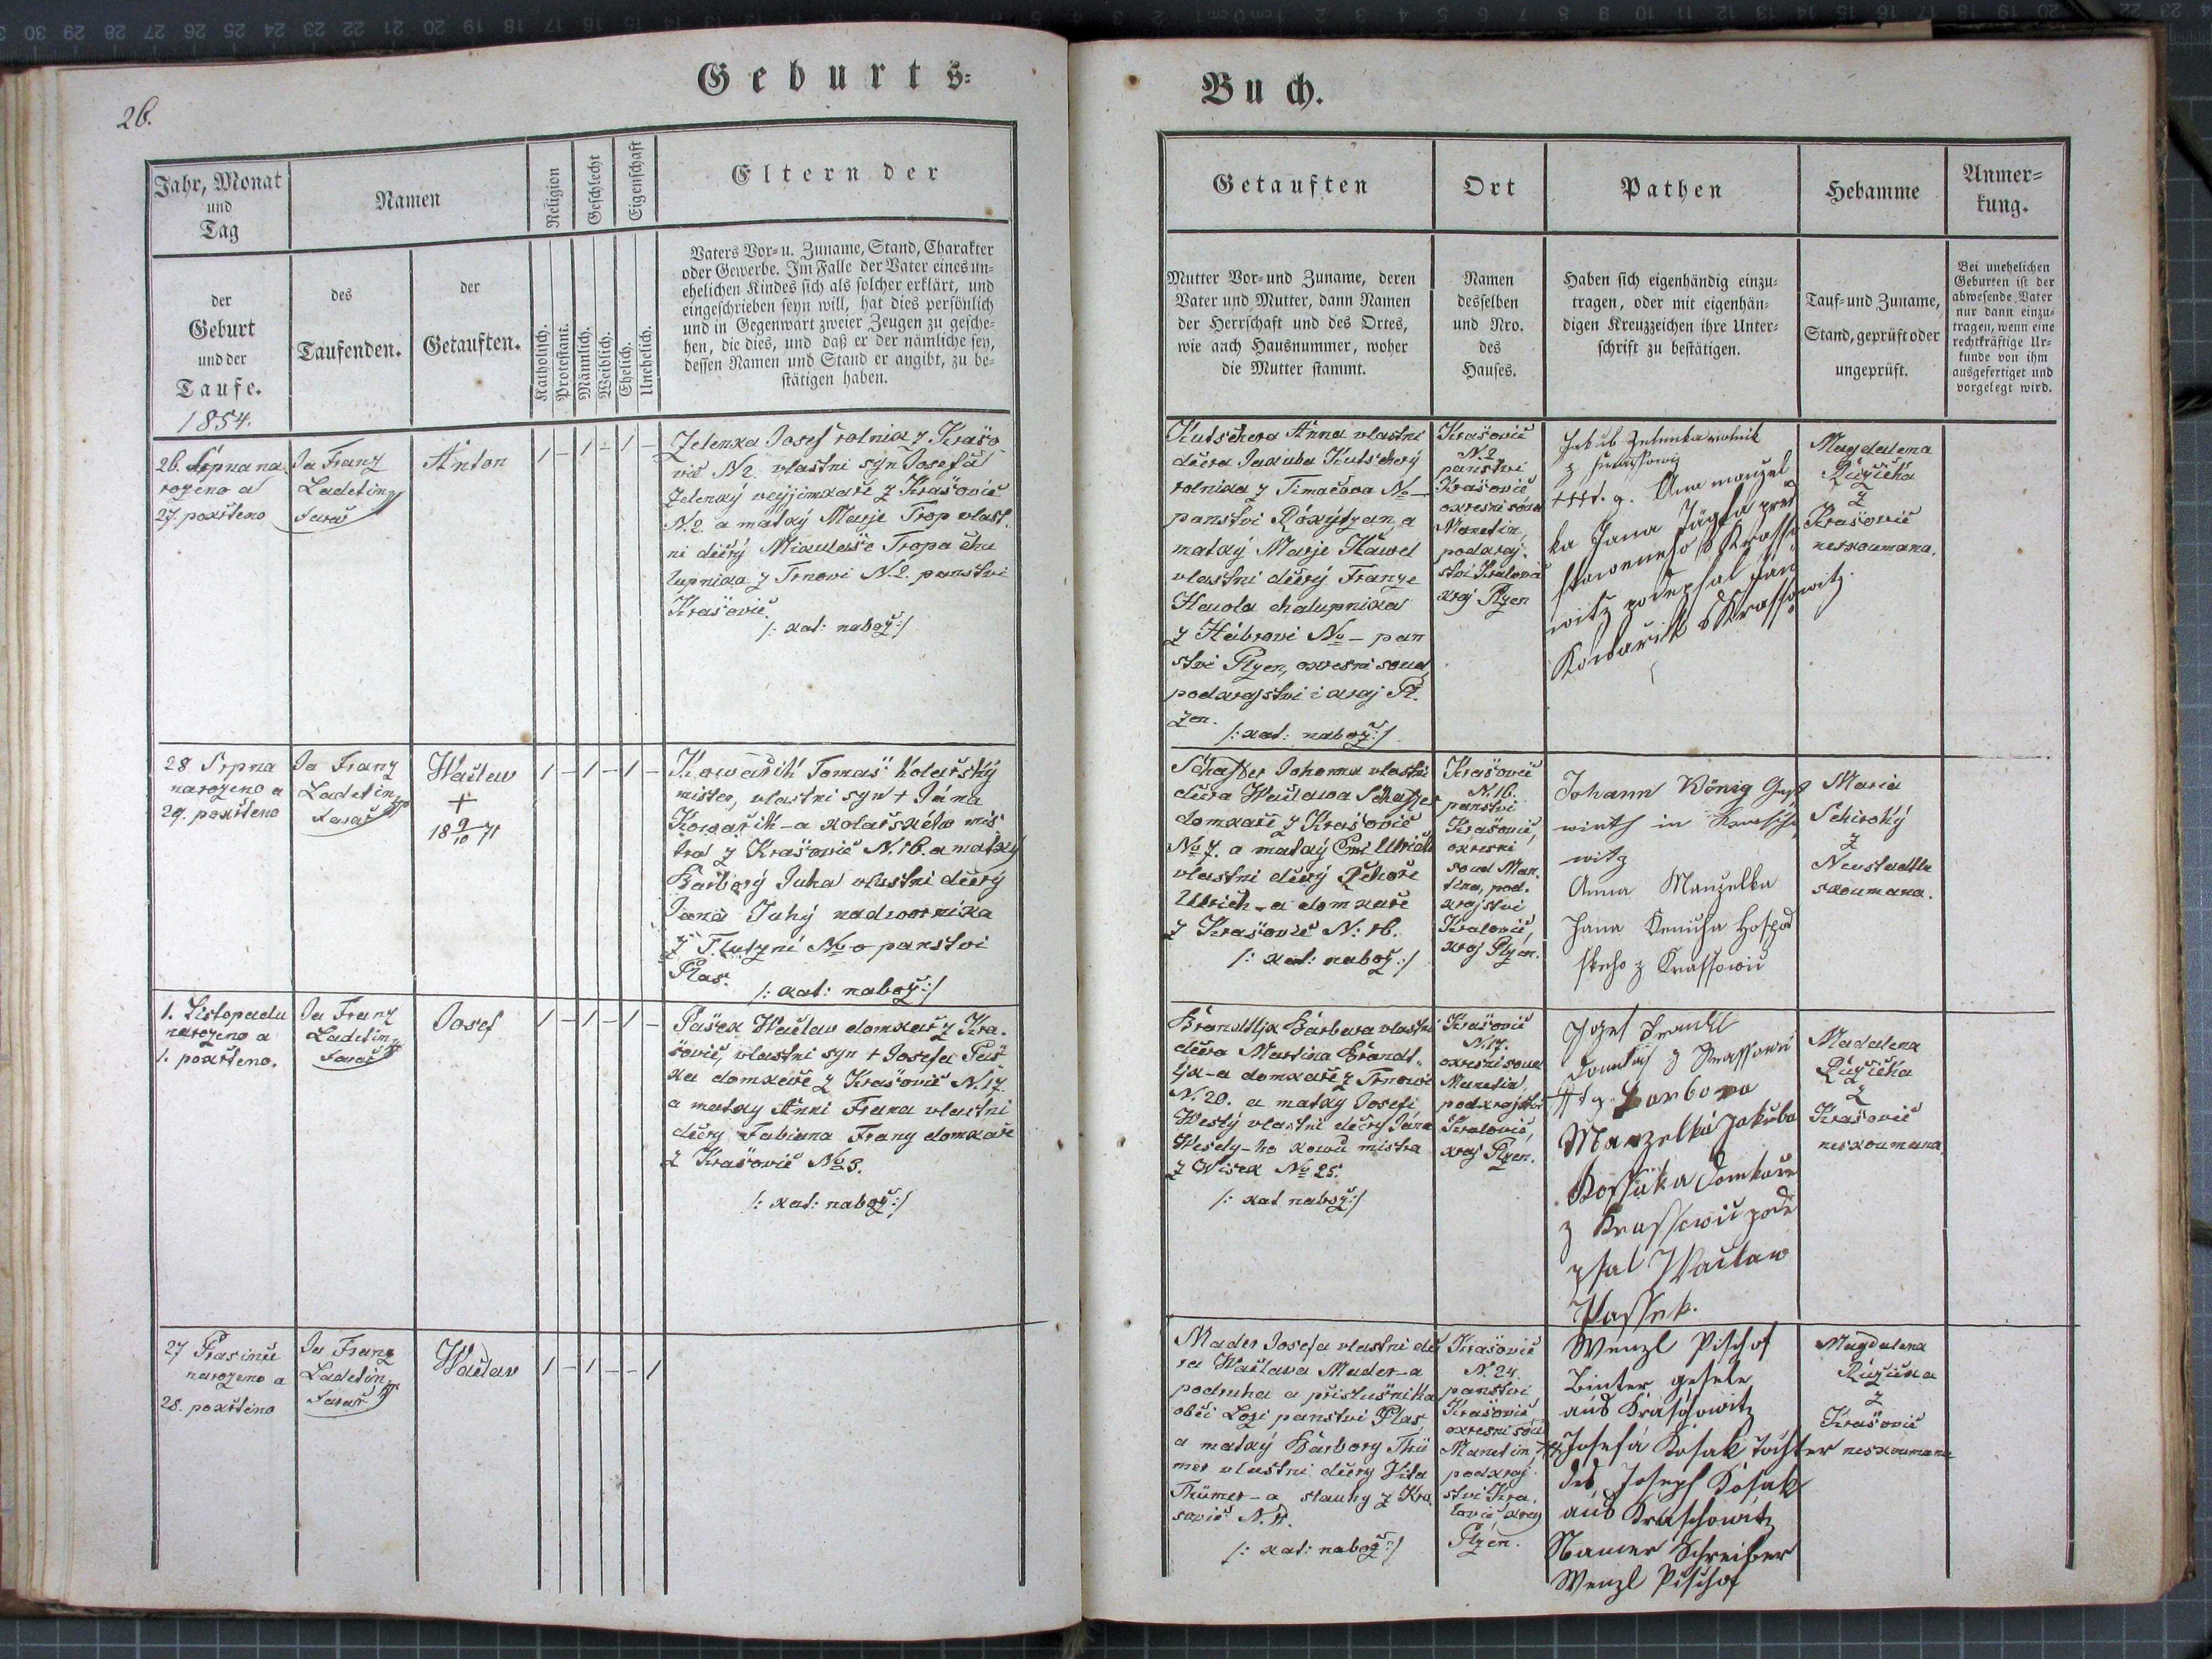 Geburts=
Buch.
26.
Jahr, Monat
und
Tag
Namen
Religion
Geschlecht
Eigenschaft
Eltern der
der
Geburt
und der
Taufe.
des
Taufenden.
der
Getauften.
Katholisch.
Protestant.
Männlich.
Weiblich.
Ehelich.
Unehelich.
Vaters Vor= u. Zuname, Stand, Charakter
oder Gewerbe. Im Falle der Vater eines un=
ehelichen Kindes sich als solcher erklärt, und
eingeschrieben seyn will, hat dies persönlich
und in Gegenwart zweier Zeugen zu gesche=
hen, die dies, und daß er der nämliche sey,
dessen Namen und Stand er angibt, zu be=
stätigen haben.
Getauften
Ort
Pathen
Hebamme
Anmer=
kung.
Mutter Vor= und Zuname, deren
Vater und Mutter, dann Namen
der Herrschaft und des Ortes,
wie auch Hausnummer, woher
die Mutter stammt.
Namen
desselben
und Nro.
des
Hauses.
Haben sich eigenhändig einzu=
tragen, oder mit eigenhän=
digen Kreuzzeichen ihre Unter=
schrift zu bestätigen.
Tauf= und Zuname,
Stand, geprüft oder
ungeprüft.
Bei unehelichen
Geburten ist der
abwesende Vater
nur dann einzu=
tragen, wenn eine
rechtkräftige Ur=
kunde von ihm
ausgefertiget und
vorgelegt wird.
1854.
26. Srpna na
rozeno a
27. pokřteno
Ja Franz
Ladetin
Farař
Anton
1 - 1 - 1 -
Zelenka Josef rolnik z Krašo
vic N 2. vlastni syn Josefa
Zelenký veyjimkaře z Krašovic
N.2 a matký Marje Trop vlast.
ni dčerý Mikulaše Tropa cha
lupnika z Trnovi N.2. panstvi
Krašovic.
/: kat: nabož:/
Kutschera Anna vlastni
dčera Jakuba Kutscherý
rolnika z Timačova No –
panstvi Rokýtzan, a
matký Marje Hawel
vlastni dčerý Franze
Havla chalupnika
z Hábrovi No – pan
stvi Plzen, okresni soud
podkrajstvi i kraj Pl.
zen.
/: kat: nabož:/
Krašovic
N.2
panstvi
Krašovic
okresni soud
Manetin,
podkraj.
stvi Kralovic
kraj Plzen
Jakub Zelenka rolnik
z
Ana manžel
ka Jana
witz podepsal Jan
Kowařik
Magdalena
Růžička
z
Krašovic
neskoumana.
28 Srpna
narozeno a
29. pokřteno
Ja Franz
Ladetin
Farař
Wačlaw
+
18 9/10 71
1 - 1 - 1 -
Kowařik Tomaš kolařský
mister, vlastni syn + Jána
Kowařik-a kolařského mis
tra z Krašovic N.16. a matký
Barborý Juha vlastni dčerý
Jana Juhý nadvornika
No 0 panstvi
Plas.
/: kat: nabož:/
Schaffer Johanna vlastni
dčera Wačlawa Schaffer
domkaře z Krašovic
No 7. a matký Ulrich
vlastni dčerý Řehoře
Ulrich-a domkaře
z Krašovic N: 16.
/: kat: nabož:/
Krašovic
N.16.
panstvi
Krašovic,
okresni
soud Man.
tina, pod.
krajstvi
Kralovic,
kraj Plzen.
Johann König Gast
wirth in
witz
Anna Manzelka
Jana
z Krassowic
Maria
Schiroký
z
Neustadtla
skoumana.
1. Listopadu
narozeno a
1. pokřteno.
Ja Franz
Ladetin
Farař
Josef
1 - 1 - 1 -
Pašek Wačlav domkař z Kra.
šovic, vlastni syn + Josefa Paš
ka domkaře z Krašovic N.17.
a matky Anni Frana vlastni
dčery Fabiana Frany domkaře
z Krašovic No 3.
/: kat: nabož:/
Brandtljk Barbara vlastni
dčera Martina Brandt.
ljk-a domkaře z Trnovi
N.20. a matký Josefi
Weslý vlastni dčerý Jána
Wesely-ho kowa mistra
z Wisek No 25.
/: kat nabož:/
Krašovic
N.17.
okresni soud
Manetin,
podkrajstvi
Kralovic,
kraj Plzen.
Jozef
z Krassowic
Barbora
Manzelka Jakuba
domkaře
z Krassowic pode
psal Wačlaw
Passek.
Madalena
Růžička
z
Krašovic
neskoumana
27 Prasince
narozeno a
28. pokřteno
Ja Franz
Ladetin
Farař
Wačlav
1 - 1 - - 1
Mader Josefa vlastni dče
ra Wačlava Mader-a
podruha a přislušnika
obči Lozi panstvi Plas
a matký Barbory Thü
mer vlastni dčery Vita
Thümer-a slauhy z Kra
sovic N. 11.
/: kat: nabož:/
Krašovic
N. 24.
panstvi
Krašovic
okresni soud
Manetin,
podkraj.
stvi Kra.
lovic, kraj
Plzen.
Wenzl Pischof
Binter gesele
aus Kraschowitz
Josefa Kosak Tochter
des Joseph Kosak
aus Kraschowitz
Namens Schreiber
Wenzl Pischof
Magdalena
Růžička
z
Krašovic
neskoumana